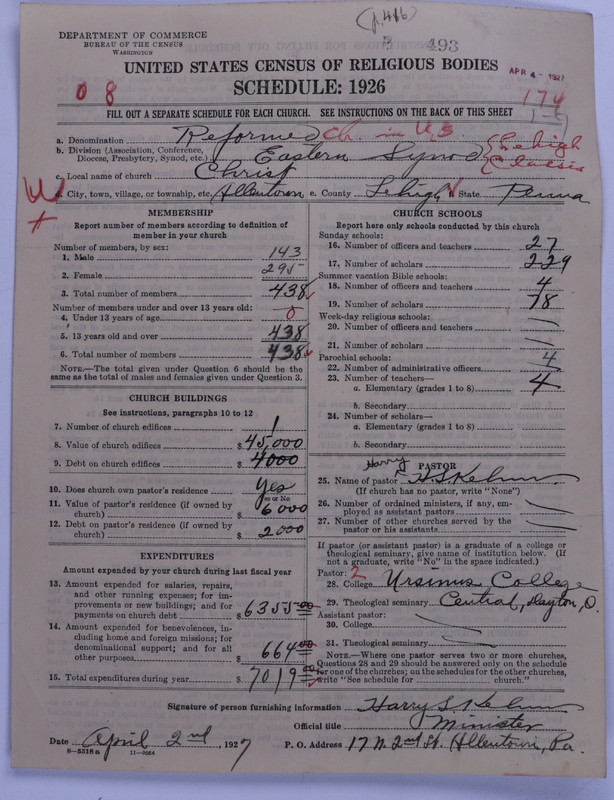 (p.416)
493
DEPARTMENT OF COMMERCE
BUREAU OF THE CENSUS
WASHINGTON
UNITED STATES CENSUS OF RELIGIOUS BODIES
APR 4 - 1927
SCHEDULE: 1926
0 8
174
FILL OUT A SEPARATE SCHEDULE FOR EACH CHURCH. SEE INSTRUCTIONS ON THE BACK OF THIS SHEET
a. Denomination Reformed Ch. in U.S.
b. Division (Association, Conference, Diocese, Presbytery, Synod, etc.) Eastern Synod {Lehigh Classis
c. Local name of church Christ
d. City, town, village, or township, etc. Allentown e. County Lehigh State Penna
MEMBERSHIP
Report number of members according to definition of
member in your church
Number of members, by sex:
1. Male 143
2. Female 295
3. Total number of members 438
Number of members under and over 13 years old:
4. Under 13 years of age 0
5. 13 years old and over 438
6. Total number of members 438
NOTE.—The total given under Question 6 should be
same as the total of males and females given under Question 3.
CHURCH BUILDINGS
See instructions, paragraphs 10 to 12
7. Number of church edifices 1
8. Value of church edifices $45,000
9. Debt on church edifices $4000
10. Does church own pastor's residence Yes
Yes or No
11. Value of pastor's residence (if owned by
church) $6000
12. Debt on pastor's residence (if owned by
church) $2000
EXPENDITURES
Amount expended by your church during last fiscal year
13. Amount expended for salaries, repairs,
and other running expenses; for im-
provements or new buildings; and for
payments on church debt $6355 00
14. Amount expended for benevolences, in-
cluding home and foreign missions; for
denominational support; and for all
other purposes $664 00
15. Total expenditures during year $7019 00
CHURCH SCHOOLS
Report here only schools conducted by this church
Sunday schools:
16. Number of officers and teachers 27
17. Number of scholars 229
Summer vacation Bible schools:
18. Number of officers and teachers 4
19. Number of scholars 78
Week-day religious schools:
20. Number of officers and teachers
21. Number of scholars
Parochial schools:
22. Number of administrative officers 4
23. Number of teachers—
a. Elementary (grades 1 to 8) 4
b. Secondary
24. Number of scholars—
a. Elementary (grades 1 to 8)
b. Secondary
PASTOR
25. Name of pastor Harry H S Kehm
(If church has no pastor, write "None")
26. Number of ordained ministers, if any, em-
ployed as assistant pastors
27. Number of other churches served by the
pastor
If pastor (or assistant pastor) is a graduate of a college or
theological seminary, give name of institution below. (If
not a graduate, write "No" in the space indicated.)
Pastor: 2
28. College Ursinus College
29. Theological seminary Central, Dayton, O.
Assistant pastor:
30. College
31. Theological seminary
NOTE.—Where one pastor serves two or more churches,
Questions 28 and 29 should be answered only on the schedule
for one of the churches; on the schedules for the other churches,
write "See schedule for church."
Signature of person furnishing information Harry S Kehm
Official title Minister
Date April 2nd, 1927 P. O. Address 17 N. 2nd St. Allentown, Pa.
8—5318 a 11—9064